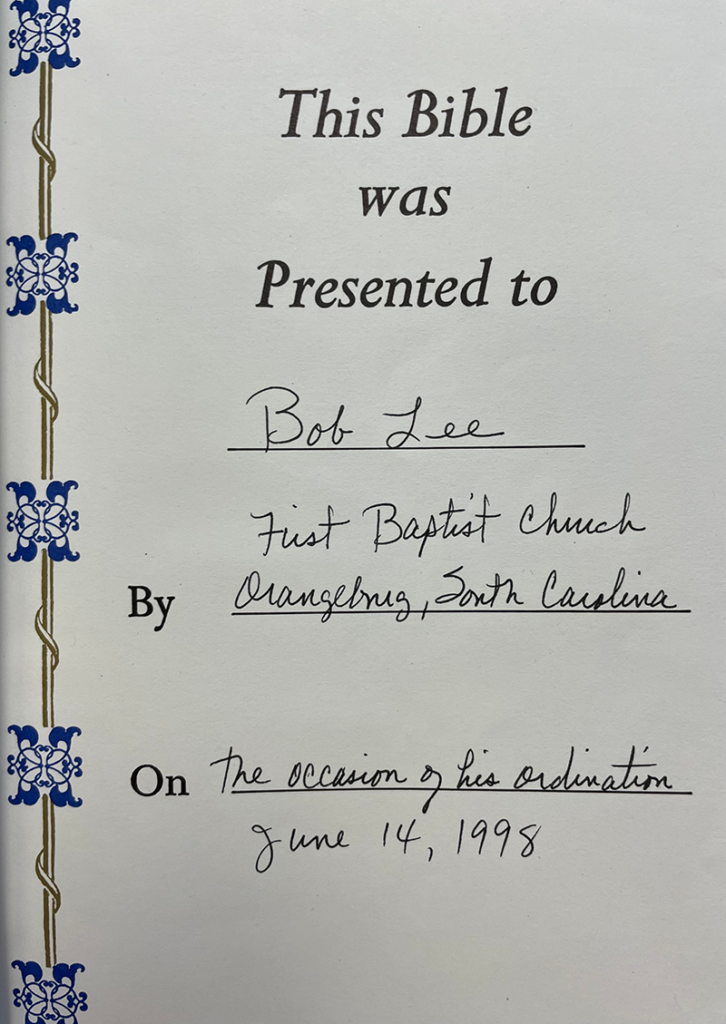 This Bible
was
Presented to
Bob Lee
First Baptist Church
By Orangeburg, South Carolina
On the occasion of his ordination
June 14, 1998